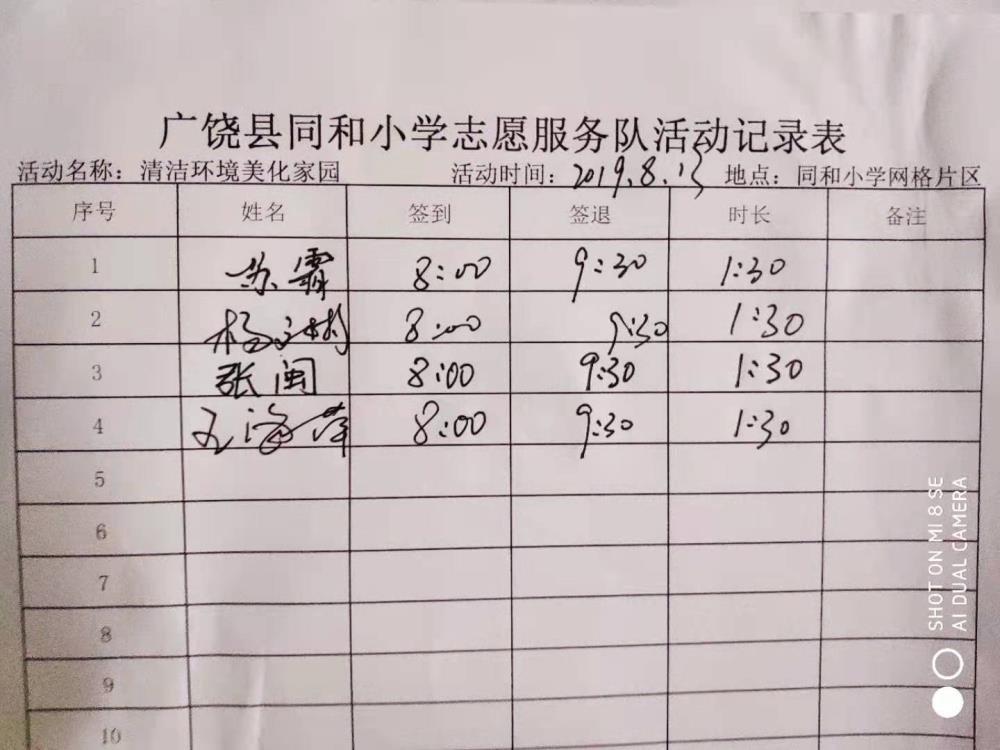 广饶县同和小学志愿服务队活动记录表
活动名称：清洁环境美化家园 活动时间：2019.8.13 地点：同和小学网格片区
序号 姓名 签到 签退 时长 备注
1 苏霸 8:00 9:30 1:30
2 杨 8:00 9:30 1:30
3 张闽 8:00 9:30 1:30
4 王海萍 8:00 9:30 1:30
5
6
7
8
9
10
SHOT ON MI 8 SE
AI DUAL CAMERA